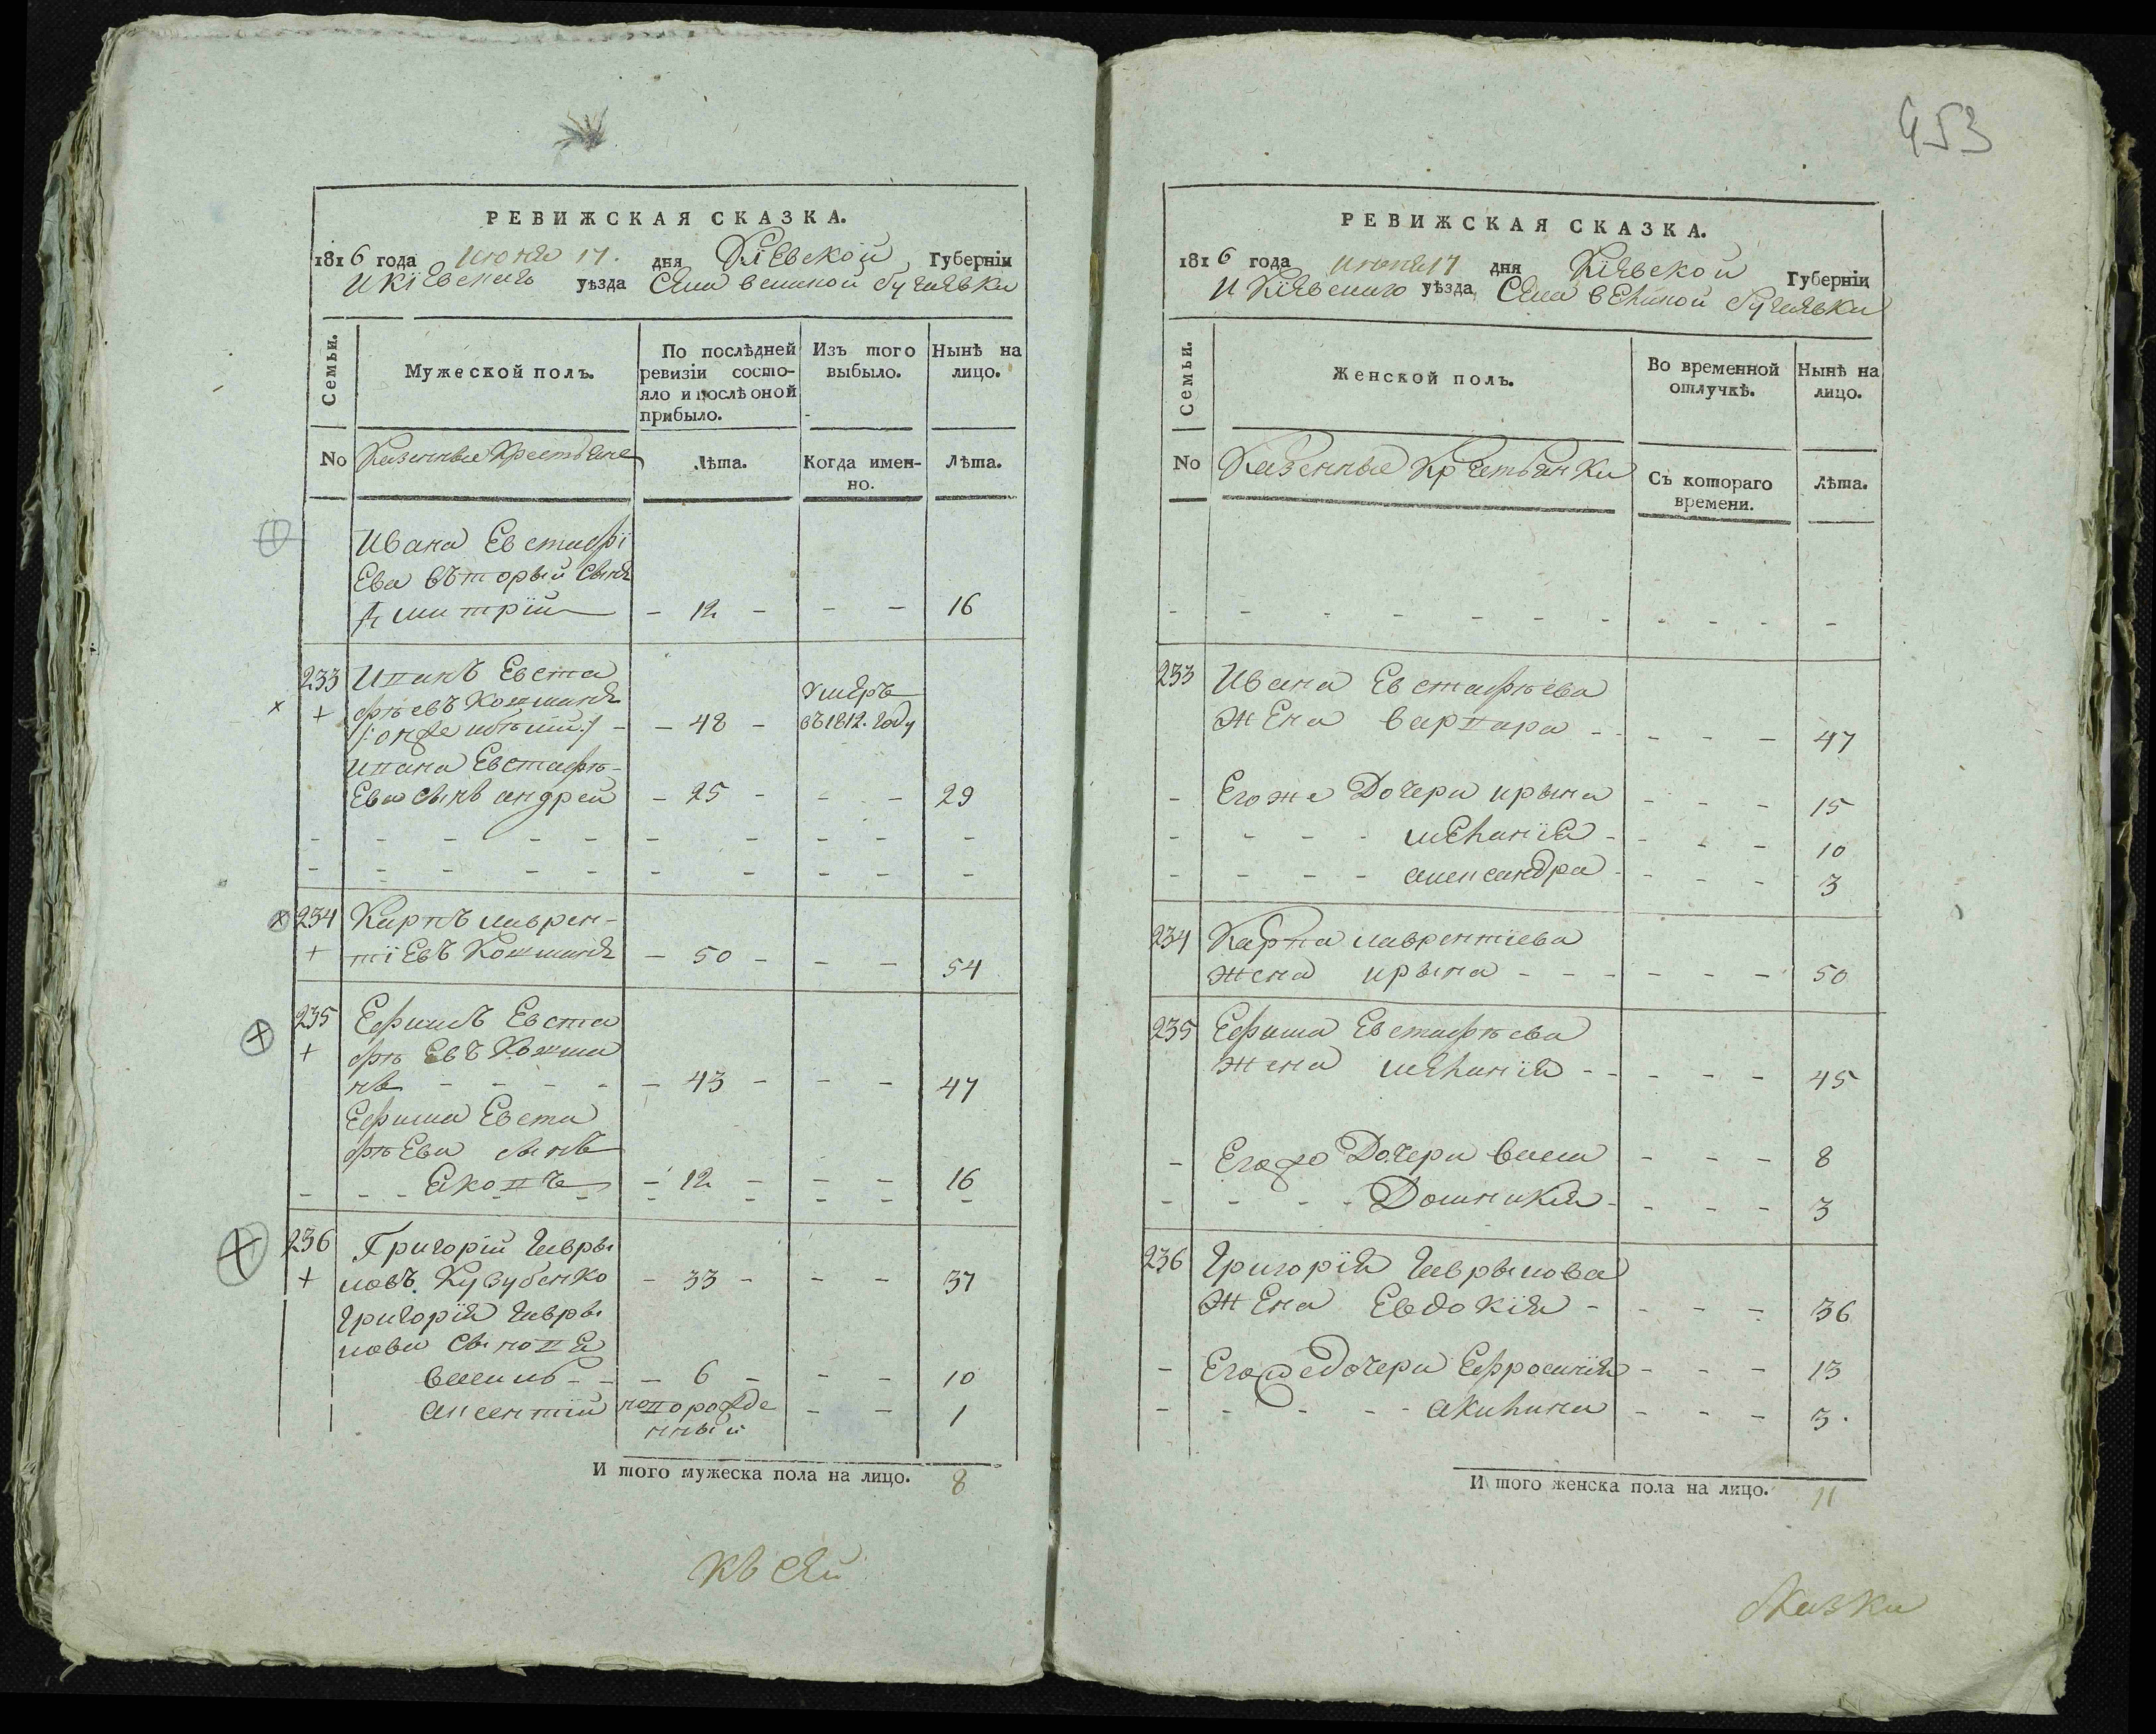 РЕВИЖСКАЯ СКАЗКА.
1816 года июня 17. дня Кіевской Губерніи
и Кіевскаго уѣзда Села Великой бугаевки
Семьи.
Мужеской полъ.
По послѣдней ревизіи состо-
яло и послѣ оной
прибыло.
Изъ того
выбыло.
Нынѣ на
лицо.
No
Казенные Крестьяне
Лѣта.
Когда имен-
но.
Лѣта.
Ивана Евстафі
Ева въторый сынъ
Дмитрій - 12 - - - 16
233 Иванъ Евста
фѣевъ Кошманъ
- 48 -
умеръ
въ 1812. году
Ивана Евстафѣ-
Ева сынъ андрей - 25 - - - 29
234 Карпъ лаврен-
тіЕвъ Кошманъ - 50 - - - 54
235 Ефимъ Евста
фѣЕвъ Кошма
нъ - - - - - 43 - - - 47
Ефима Евста
фѣЕва сынъ
Яковъ - 12 - - - 16
236 Григорій гавры
ловъ Кузубенко - 33 - - - 37
григорія гавры
лова сыновЯ
василь - - 6 - - - 10
авсентій новорожде
нный - - 1
И того мужеска пола на лицо. 8
къ сей
453
РЕВИЖСКАЯ СКАЗКА.
1816 года июня 17 дня Кіевской Губерніи
и Кіевскаго уѣзда, Села великой бугаевки
Семьи.
Женской полъ.
Во временной
отлучкѣ.
Нынѣ на
лицо.
No
Казенные Крестьянки
Съ котораго
времени.
Лѣта.
233 Ивана Евстафѣева
жена варвара - - - - 47
- Егоже Дочери ирына - - - 15
- - - - меланія - - - - 10
- - - - александра - - - - 3
234 Карпа лаврентіева
жена ирына - - - - - - 50
235 Ефима Евстафѣева
жена меланія - - - - - 45
- Егожо Дочери васса - - - 8
- - - - Домникия - - - - 3
236 григорія гаврылова
жЕна Евдокія - - - - 36
- Егоже дочери Ефросинія - - - 13
- - - - - акилина - - - 3.
И того женска пола на лицо. 11
сказки